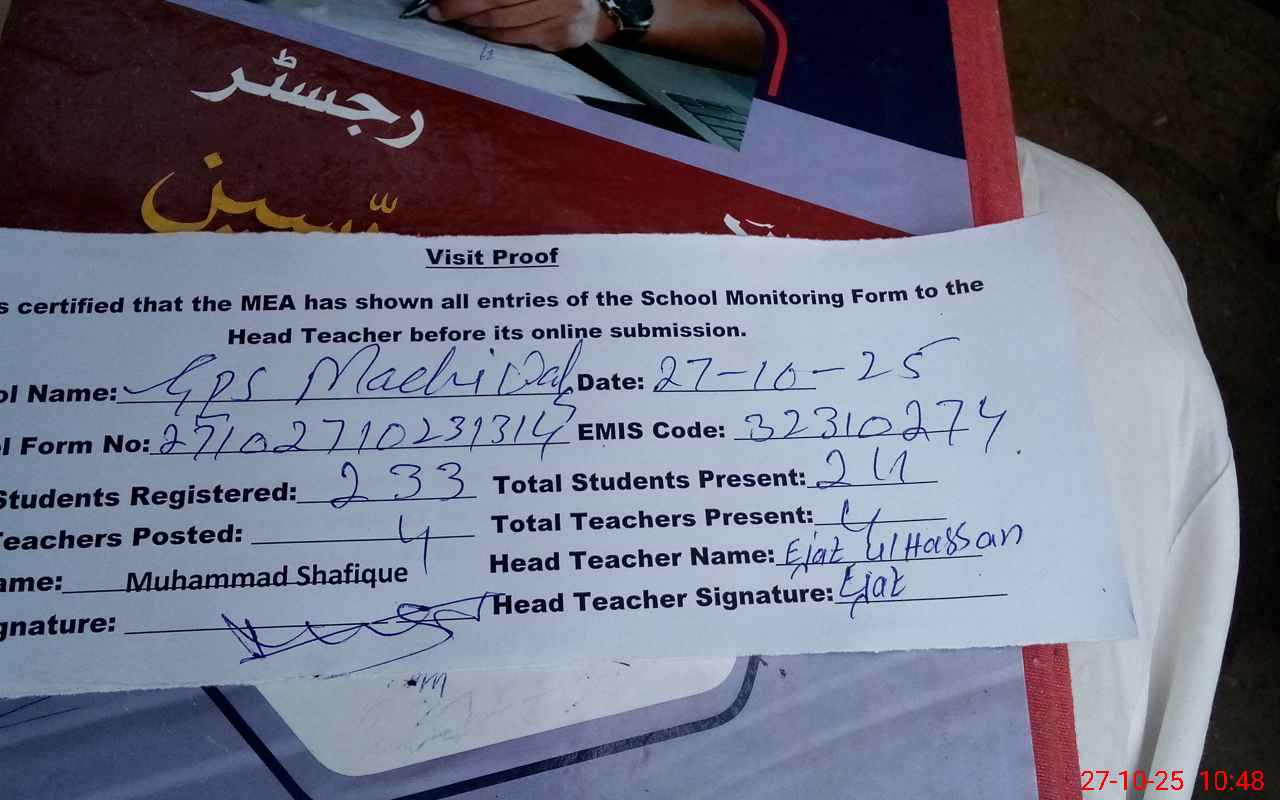 رجسٹر
Visit Proof
s certified that the MEA has shown all entries of the School Monitoring Form to the
Head Teacher before its online submission.
ol Name: GPS Machi Date: 27-10-25
l Form No: EMIS Code: 32310274
Students Registered: 233 Total Students Present:
Teachers Posted: 4 Total Teachers Present: 4
ame: Muhammad Shafique Head Teacher Name: Ejaz Ul Hassan
gnature: Head Teacher Signature: Ejaz
27-10-25 10:48